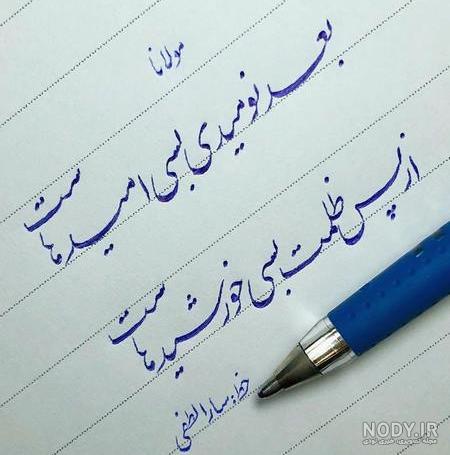 مولانا
بعد نومیدی بسی امیدهاست
از پس ظلمت بسی خورشیدهاست
خط: سارا لطفی
NODY.IR
مجله تصویری، خبری نودی